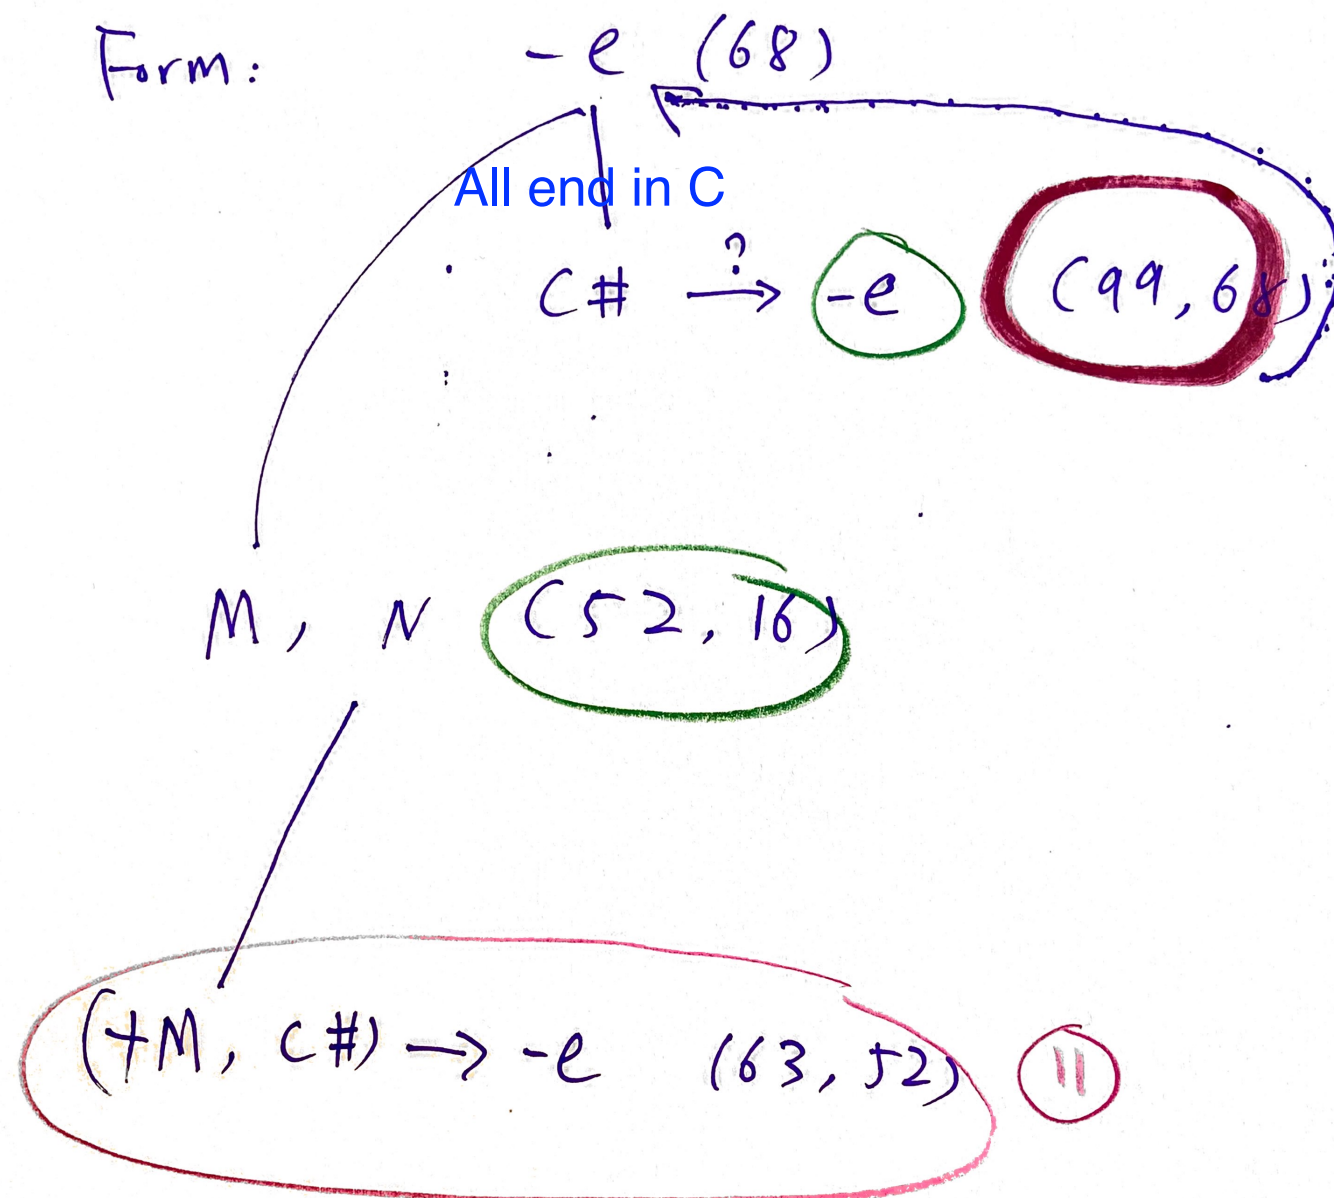 Form: -e (68)
All end in C
C# ?→ -e (99, 68)
M, N (52, 16)
(+M, C#) → -e (63, 52) 11